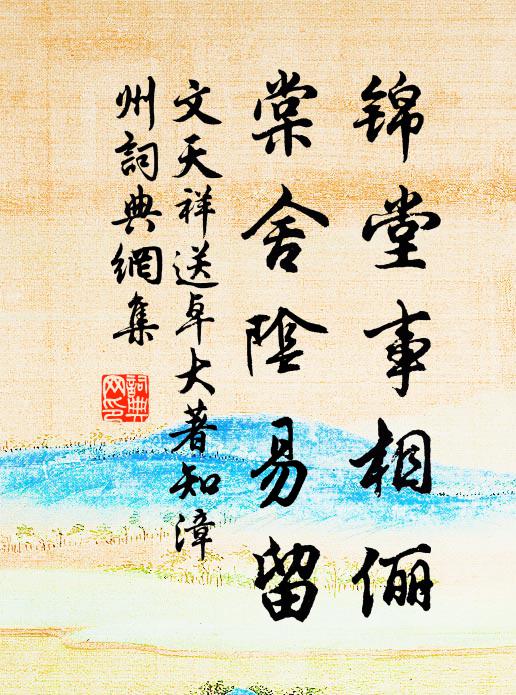 锦堂事相俪
棠舍陰易留
文天祥送卓大著知漳
州詞典網集
詞典網印